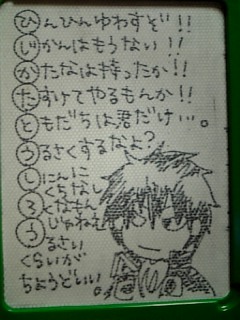 ひんひんゆわすぞ!!
じかんはもうない!!
かたなは持ったか!!
たすけてやるもんか!!
ともだちは君だけ…。
うるさくするなよ?
しにんに
くちなし
ろくなもん
じゃねえ
うるさい
くらいが
ちょうどいい。